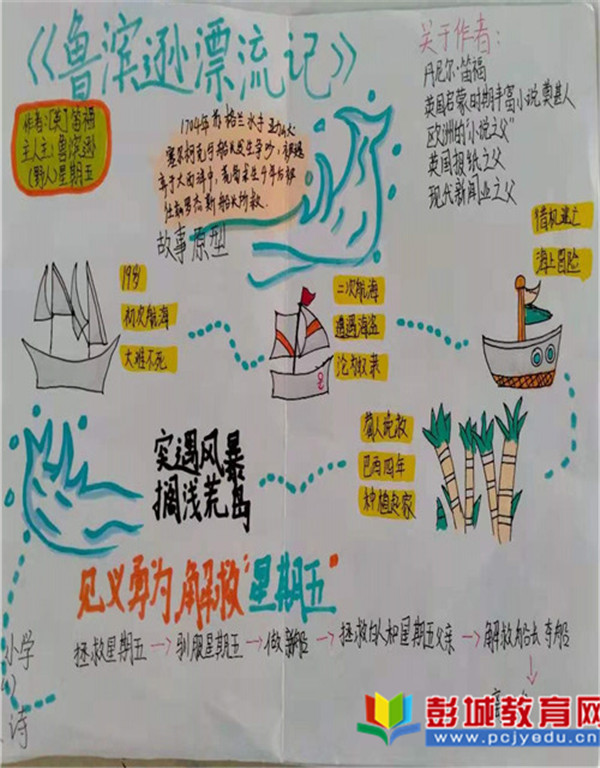 《鲁滨逊漂流记》
作者:[英]笛福
主人主:鲁滨逊
(野人)星期五
1704年苏格兰水手
塞尔柯克与船长发生争吵,被遗
弃于大西洋中,荒岛求生4年后被
伍兹罗杰斯船长所救.
故事原型
关于作者:
丹尼尔·笛福
英国启蒙时期丰富小说奠基人
欧洲的"小说之父"
英国报纸之父
现代新闻业之父
19岁
初次航海
大难不死
二次航海
遭遇海盗
沦为奴隶
借机逃亡
海上冒险
葡人说救
巴西四年
种植起家
突遇风暴
搁浅荒岛
见义勇为 解救"星期五"
拯救星期五→驯服星期五→做新船→拯救白人和星期五父亲→解救船长夺船
小学
诗
彭城教育网
www.pcjyedu.cn